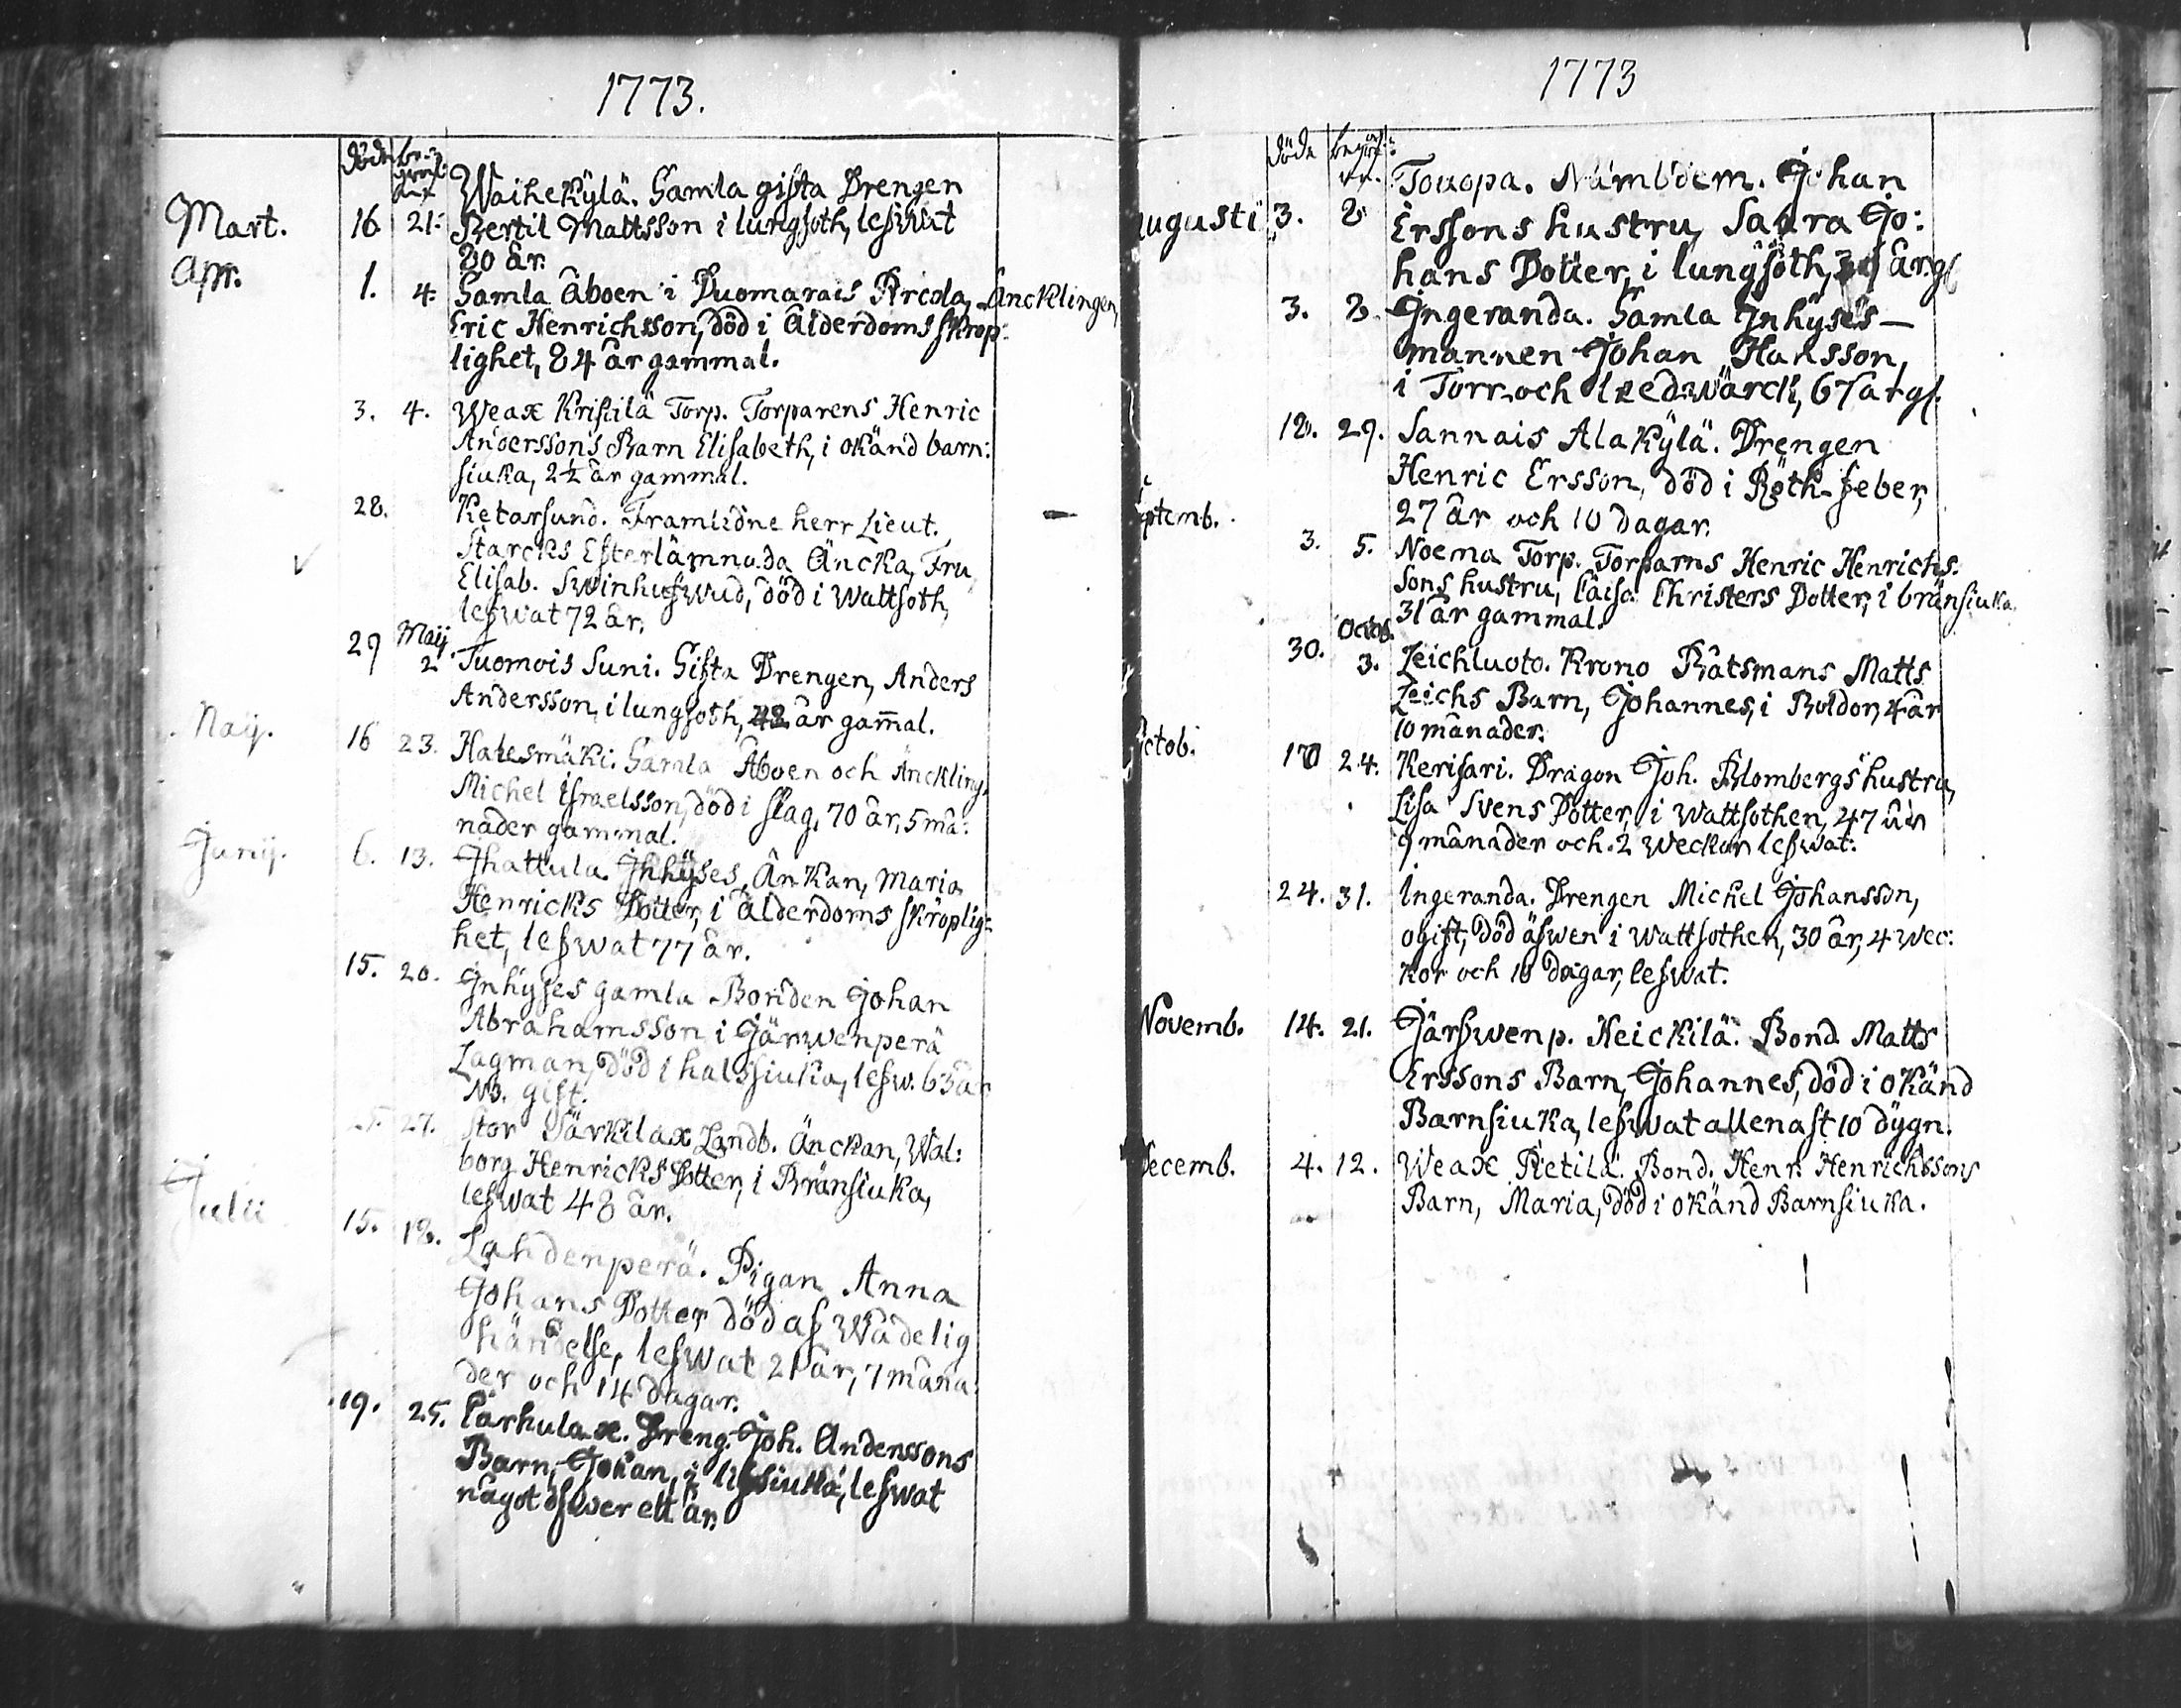 1773.
döde be-
graf:
ne
Waihekylä. Gamla gifta Drengen
Mart. 16 21. Bertil Mattsson i lungsoth, lefwat
80 år.
Apr. 1. 4. Gamla Åboen i Duomarais Arcola, Äncklingen,
Eric Henrichsson, död i Ålderdoms skrop:
lighet, 84 år gammal.
3. 4. Weax Kriscilä Torp. Torparens Henric
Anderssons Barn Elisabeth, i okänd barn:
siuka, 2½ år gammal.
28. Ketarsund. Framlidne herr Lieut.
Starcks Efterlämnada Äncka, Fru
Elisab. Swinhufwud, död i Wattsoth,
lefwat 72 år.
29 Maij 2 Tuomois Suni. Gifta Drengen, Anders
Andersson, i lungsoth, 42 år gam̅al.
Maij. 16 23. Halesmäki. Gamla Åboen och Änckling.
Michel Israelsson, död i slag, 70 år, 5 må:
nader gammal.
Junij. 6. 13. Ihattula. Inhyses Änkan, Maria
Henricks Dotter, i Ålderdoms skröplig:
het, lefwat 77 år.
15. 20. Inhyses gamla Bonden Johan
Abrahamsson i Järwenperä
Lagman, död i halssiuka, lefw. 63 år
NB. gift.
25. 27. Stor Särkilax Landb. Änckan, Wal:
borg Henricks Dotter, i Bränsiuka,
lefwat 48 år.
Julii 15. 18. Lahdenperä. Pigan Anna
Johans Dotter död af Wådelig
händelse, lefwat 21 år, 7 måna:
der och 14 dagar.
19. 25. Carhulax. Dreng. Joh. Anderssons
Barn, Johan, i lifsiuka, lefwat
något öfwer ett år.
1773
döde begraf:
ne.
Touopa. Nämbdem. Johan
Augusti 3. 8 Erssons hustru, Saara Jo:
hans Dotter, i lungsoth, år gl
3. 8. Ingeranda. Gamla Inhyses-
mannen Johan Hansson,
i Torr och leedwärck, 67 år gl.
18. 29. Sannais Alakylä. Drengen
Henric Ersson, död i Röth-feber,
27 år och 10 dagar.
Septemb. 3. 5. Noema Torp. Torparns Henric Henrichs:
sons hustru, Caisa Christers Dotter, i bränsiuka
31 år gammal.
30. Octob. 3. Leichluoto. Krono Båtsmans Matts
Leichs Barn, Johannes, i Boldor, 4 år
10 månader.
Octob. 17 24. Kerisari. Dragon Joh. Blombergs hustru,
Lisa Svens Dotter, i Wattsothen, 47 år
9 månader och 2 Weckor lefwat.
24. 31. Ingeranda. Drengen Michel Johansson,
ogift, död äfwen i Wattsothen, 30 år, 4 Wec:
kor och 10 dagar, lefwat.
Novemb. 14. 21. Järfwenp. Heickilä. Bond. Matts
Erssons Barn, Johannes, död i okänd
Barnsiuka, lefwat allenast 10 dygn.
Decemb. 4. 12. Weax Pietilä. Bond. Henr. Henrichssons
Barn, Maria, död i okänd Barnsiuka.